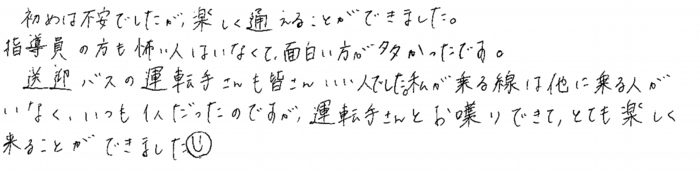 初めは不安でしたが、楽しく通えることができました。
指導員の方も怖い人はいなくて、面白い方が多かったです。
送迎バスの運転手さんも皆さんいい人でした。私が乗る線は他に乗る人が
いなく、いつも1人だったのですが、運転手さんとお喋りできて、とても楽しく
来ることができました